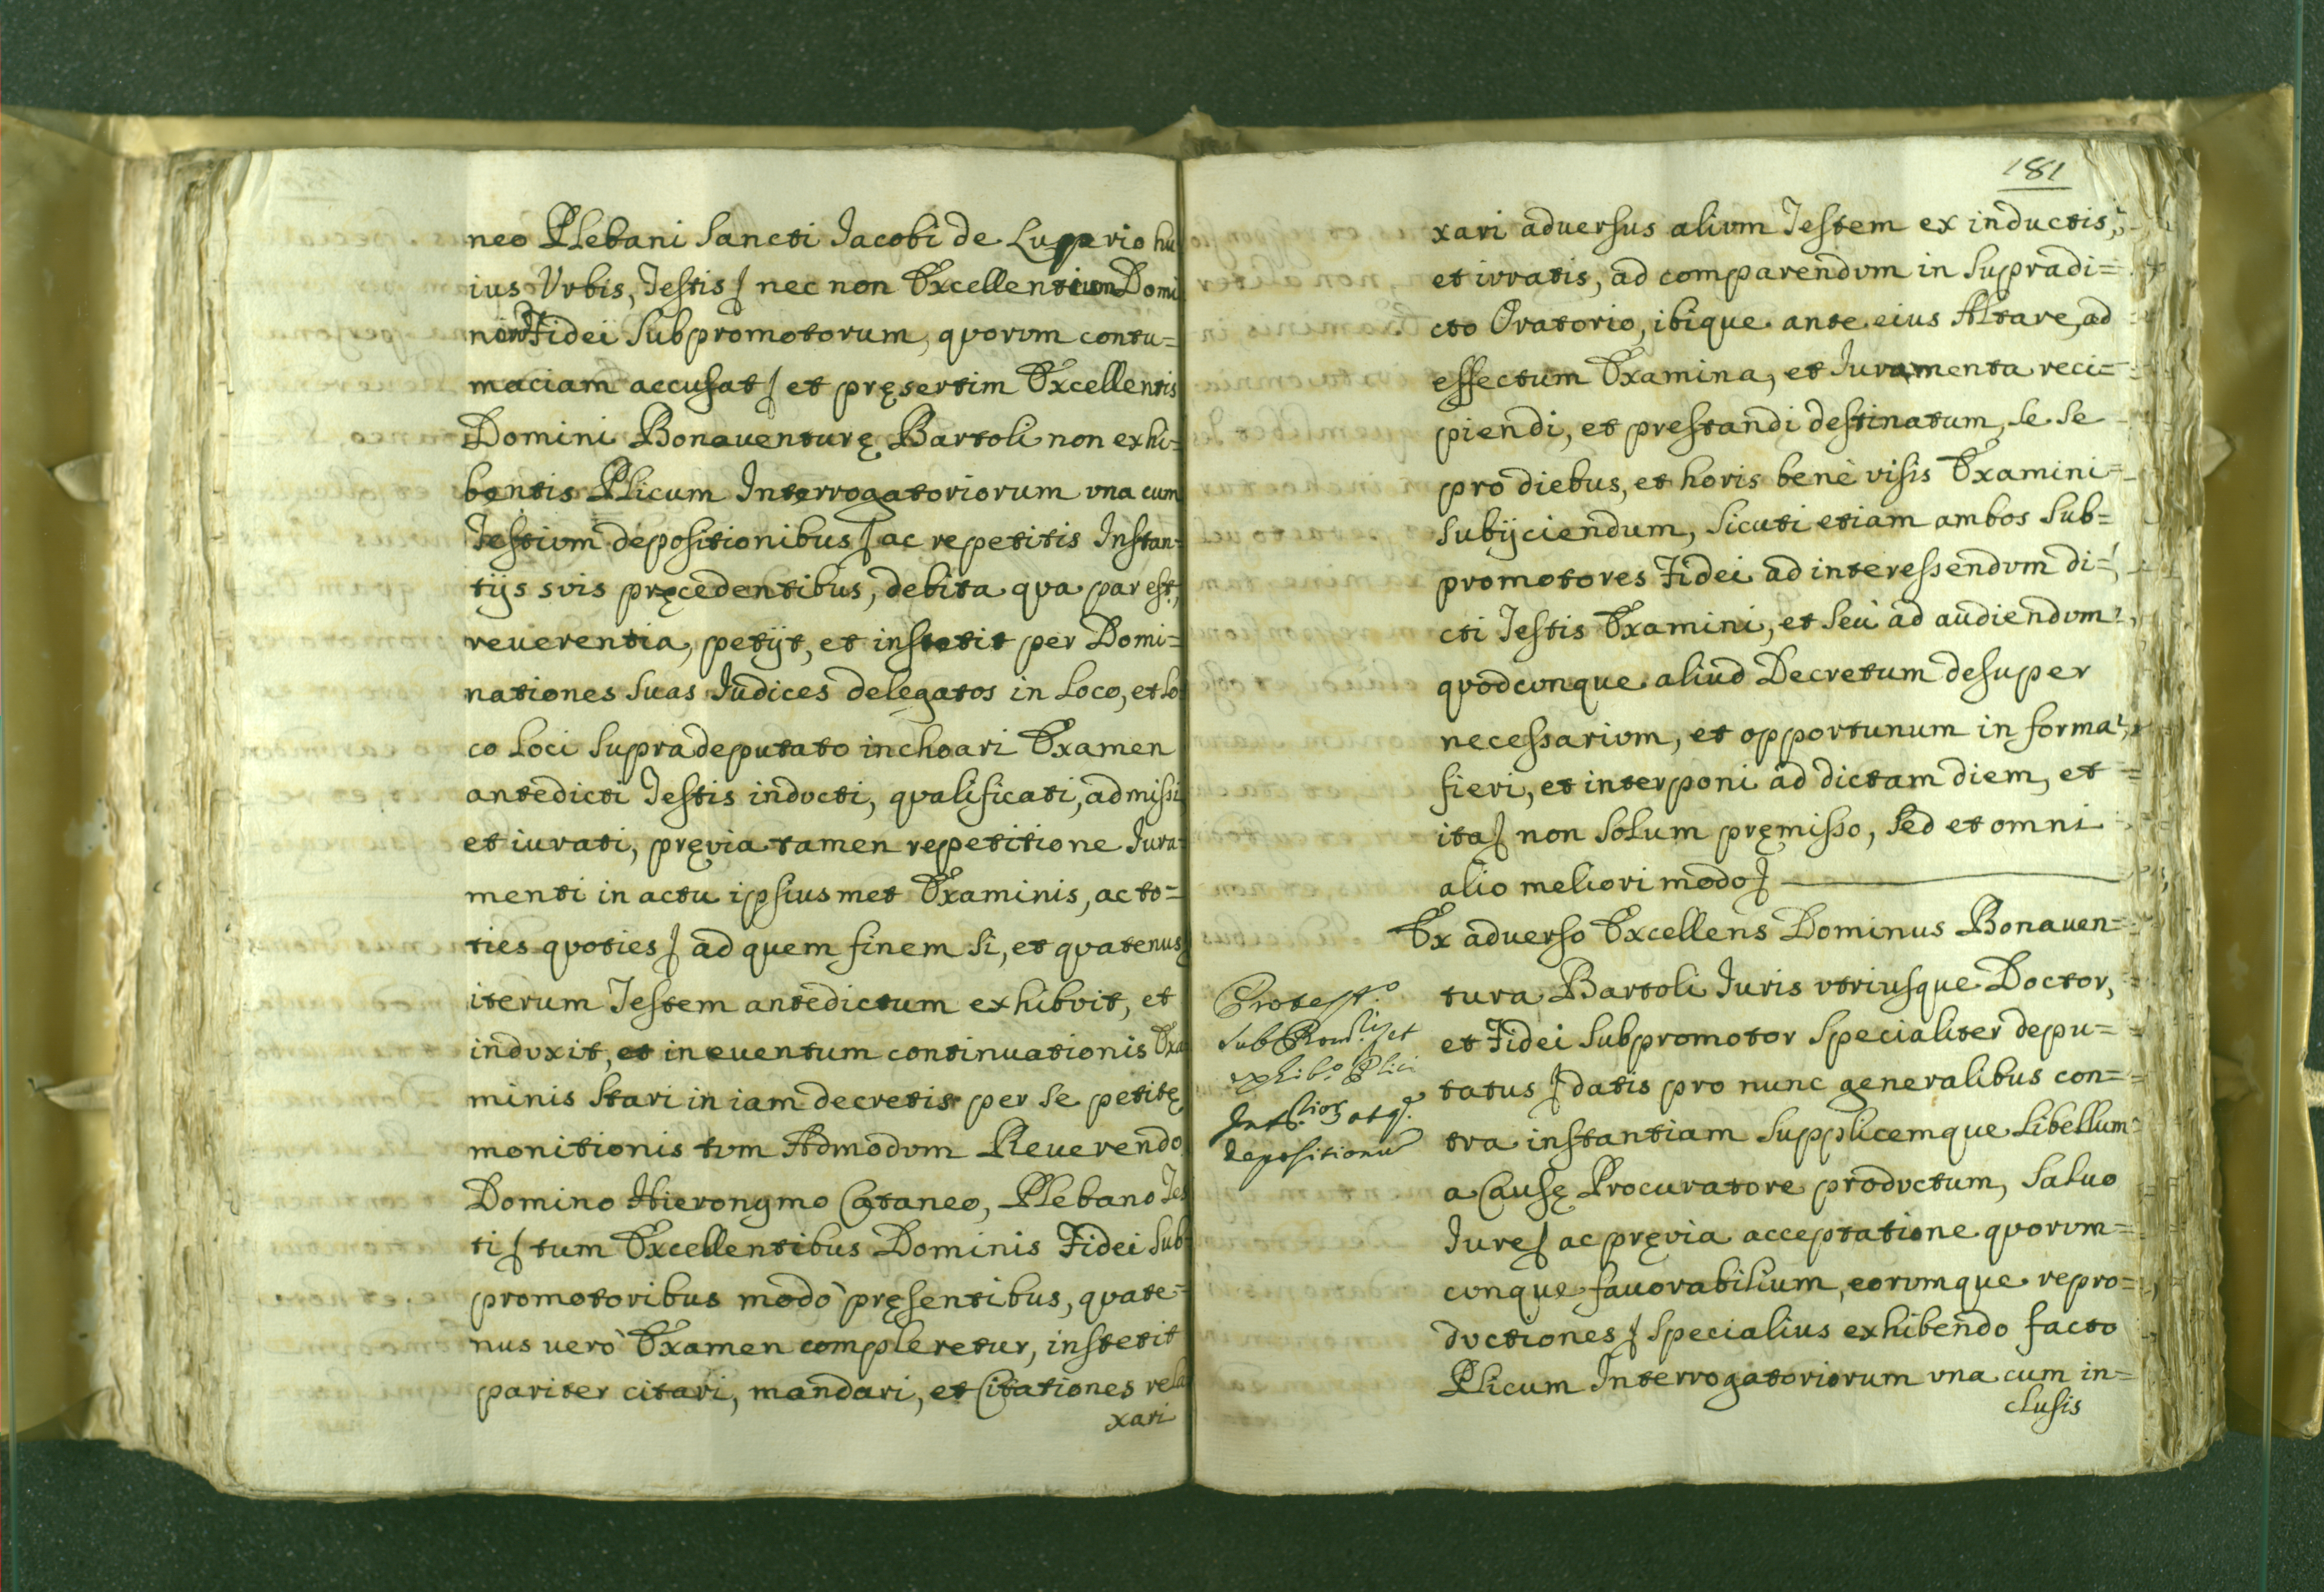 neo Plebani Sancti Jacobi de Luprio hu
ius Vrbis, Testis nec non Excellentium Domi
norum Fidei Subpromotorum, quorum contu=
maciam accusat et pręsertim Excellentis
Domini Bonauenturę Bartoli non exhi=
bentis Plicum Interrogatoriorum vna cum
Testium depositionibus ac repetitis Instan=
tijs suis pręcedentibus, debita qua par est,
reuerentia, petijt, et institit per Domi=
nationes Suas Judices delegatos in Loco, et Lo
co Loci supradeputato inchoari Examen
antedicti Testis inducti, qualificati, admissi
et iurati, pręvia tamen repetitione Jura=
menti in actu ipsiusmet Examinis, ac to=
ties quoties ad quem finem si, et quatenus
iterum Testem antedictum exhibuit, et
induxit, et in euentum continuationis Exa
minis Stari in iam decretis per se petitę
monitionis tum Admodum Reuerendo
Domino Hieronymo Cataneo, Plebano Tes
ti tum Excellentibus Dominis Fidei Sub
promotoribus modò pręsentibus, quate=
nus uerò Examen compleretur, instetit
pariter citari, mandari, et Citationes rela
xari
181
xari aduersus alium Testem ex inductis,
et iuratis, ad comparendum in supradi=
cto Oratorio, ibique ante eius Altare, ad
effectum Examina, et Juramenta reci=
piendi, et prestandi destinatum, se se
pro diebus, et horis benè visis Examini
subijciendum, sicuti etiam ambos Sub=
promotores Fidei ad interessendum di=
cti Testis Examini, et seù ad audiendum
quodcunque aliud Decretum desuper
necessarium, et opportunum in forma
fieri, et interponi ad dictam diem, et
ita non solum pręmisso, sed et omni
alio meliori modo
Ex aduerso Excellens Dominus Bonauen=
tura Bartoli Juris vtriusque Doctor,
et Fidei Subpromotor Specialiter depu=
tatus datis pro nunc generalibus con=
tra instantiam supplicemque Libellum
a Causę Procuratore productum, Saluo
Jure ac pręvia acceptatione quorum=
cunque fauorabilium, eorumque repro=
ductiones specialius exhibendo facto
Plicum Interrogatoriorum vna cum in=
clusis
Protest.º
sub et
exhib.º Plici
atq.
depositionu